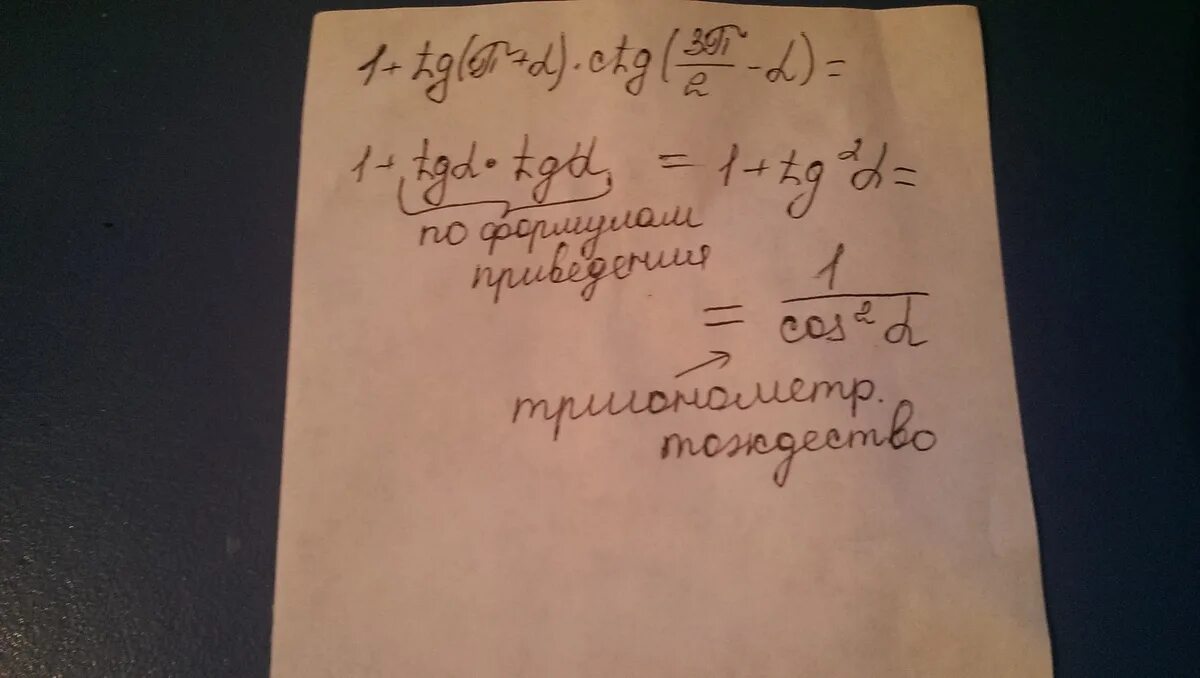 1 + tg(π+α) · ctg(3π/2 - α) =
1 + tgα · tgα = 1 + tg²α =
по формулам
приведения
= 1/cos²α
тригонометр.
тождество